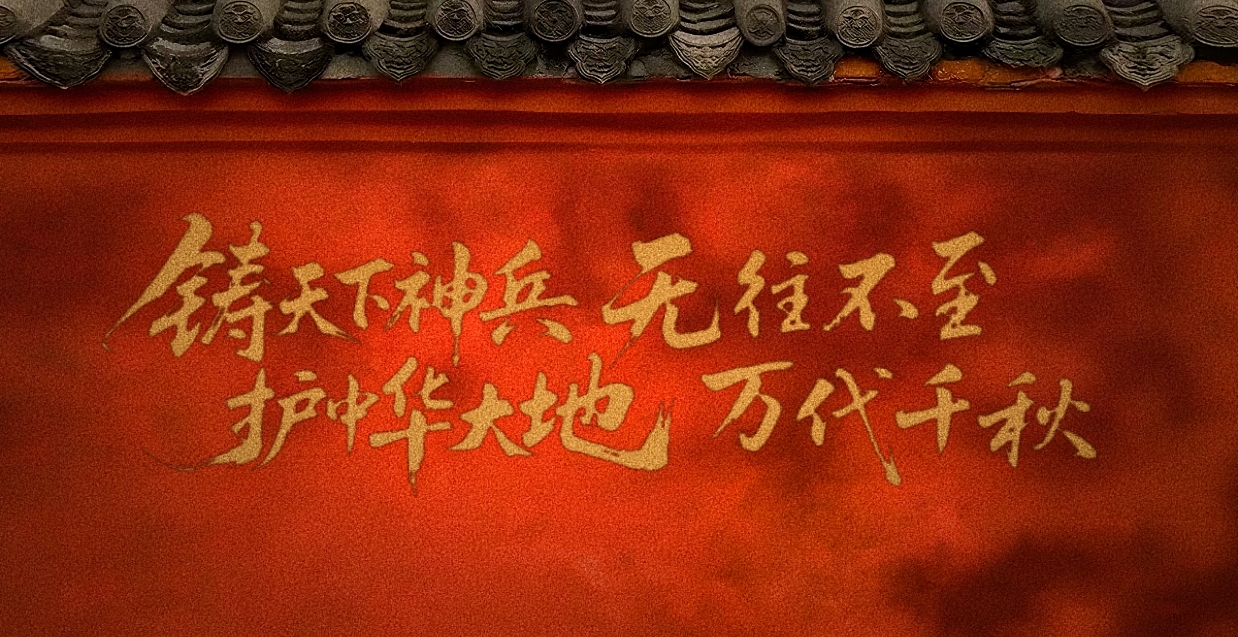 铸天下神兵 无往不至
护中华大地 万代千秋